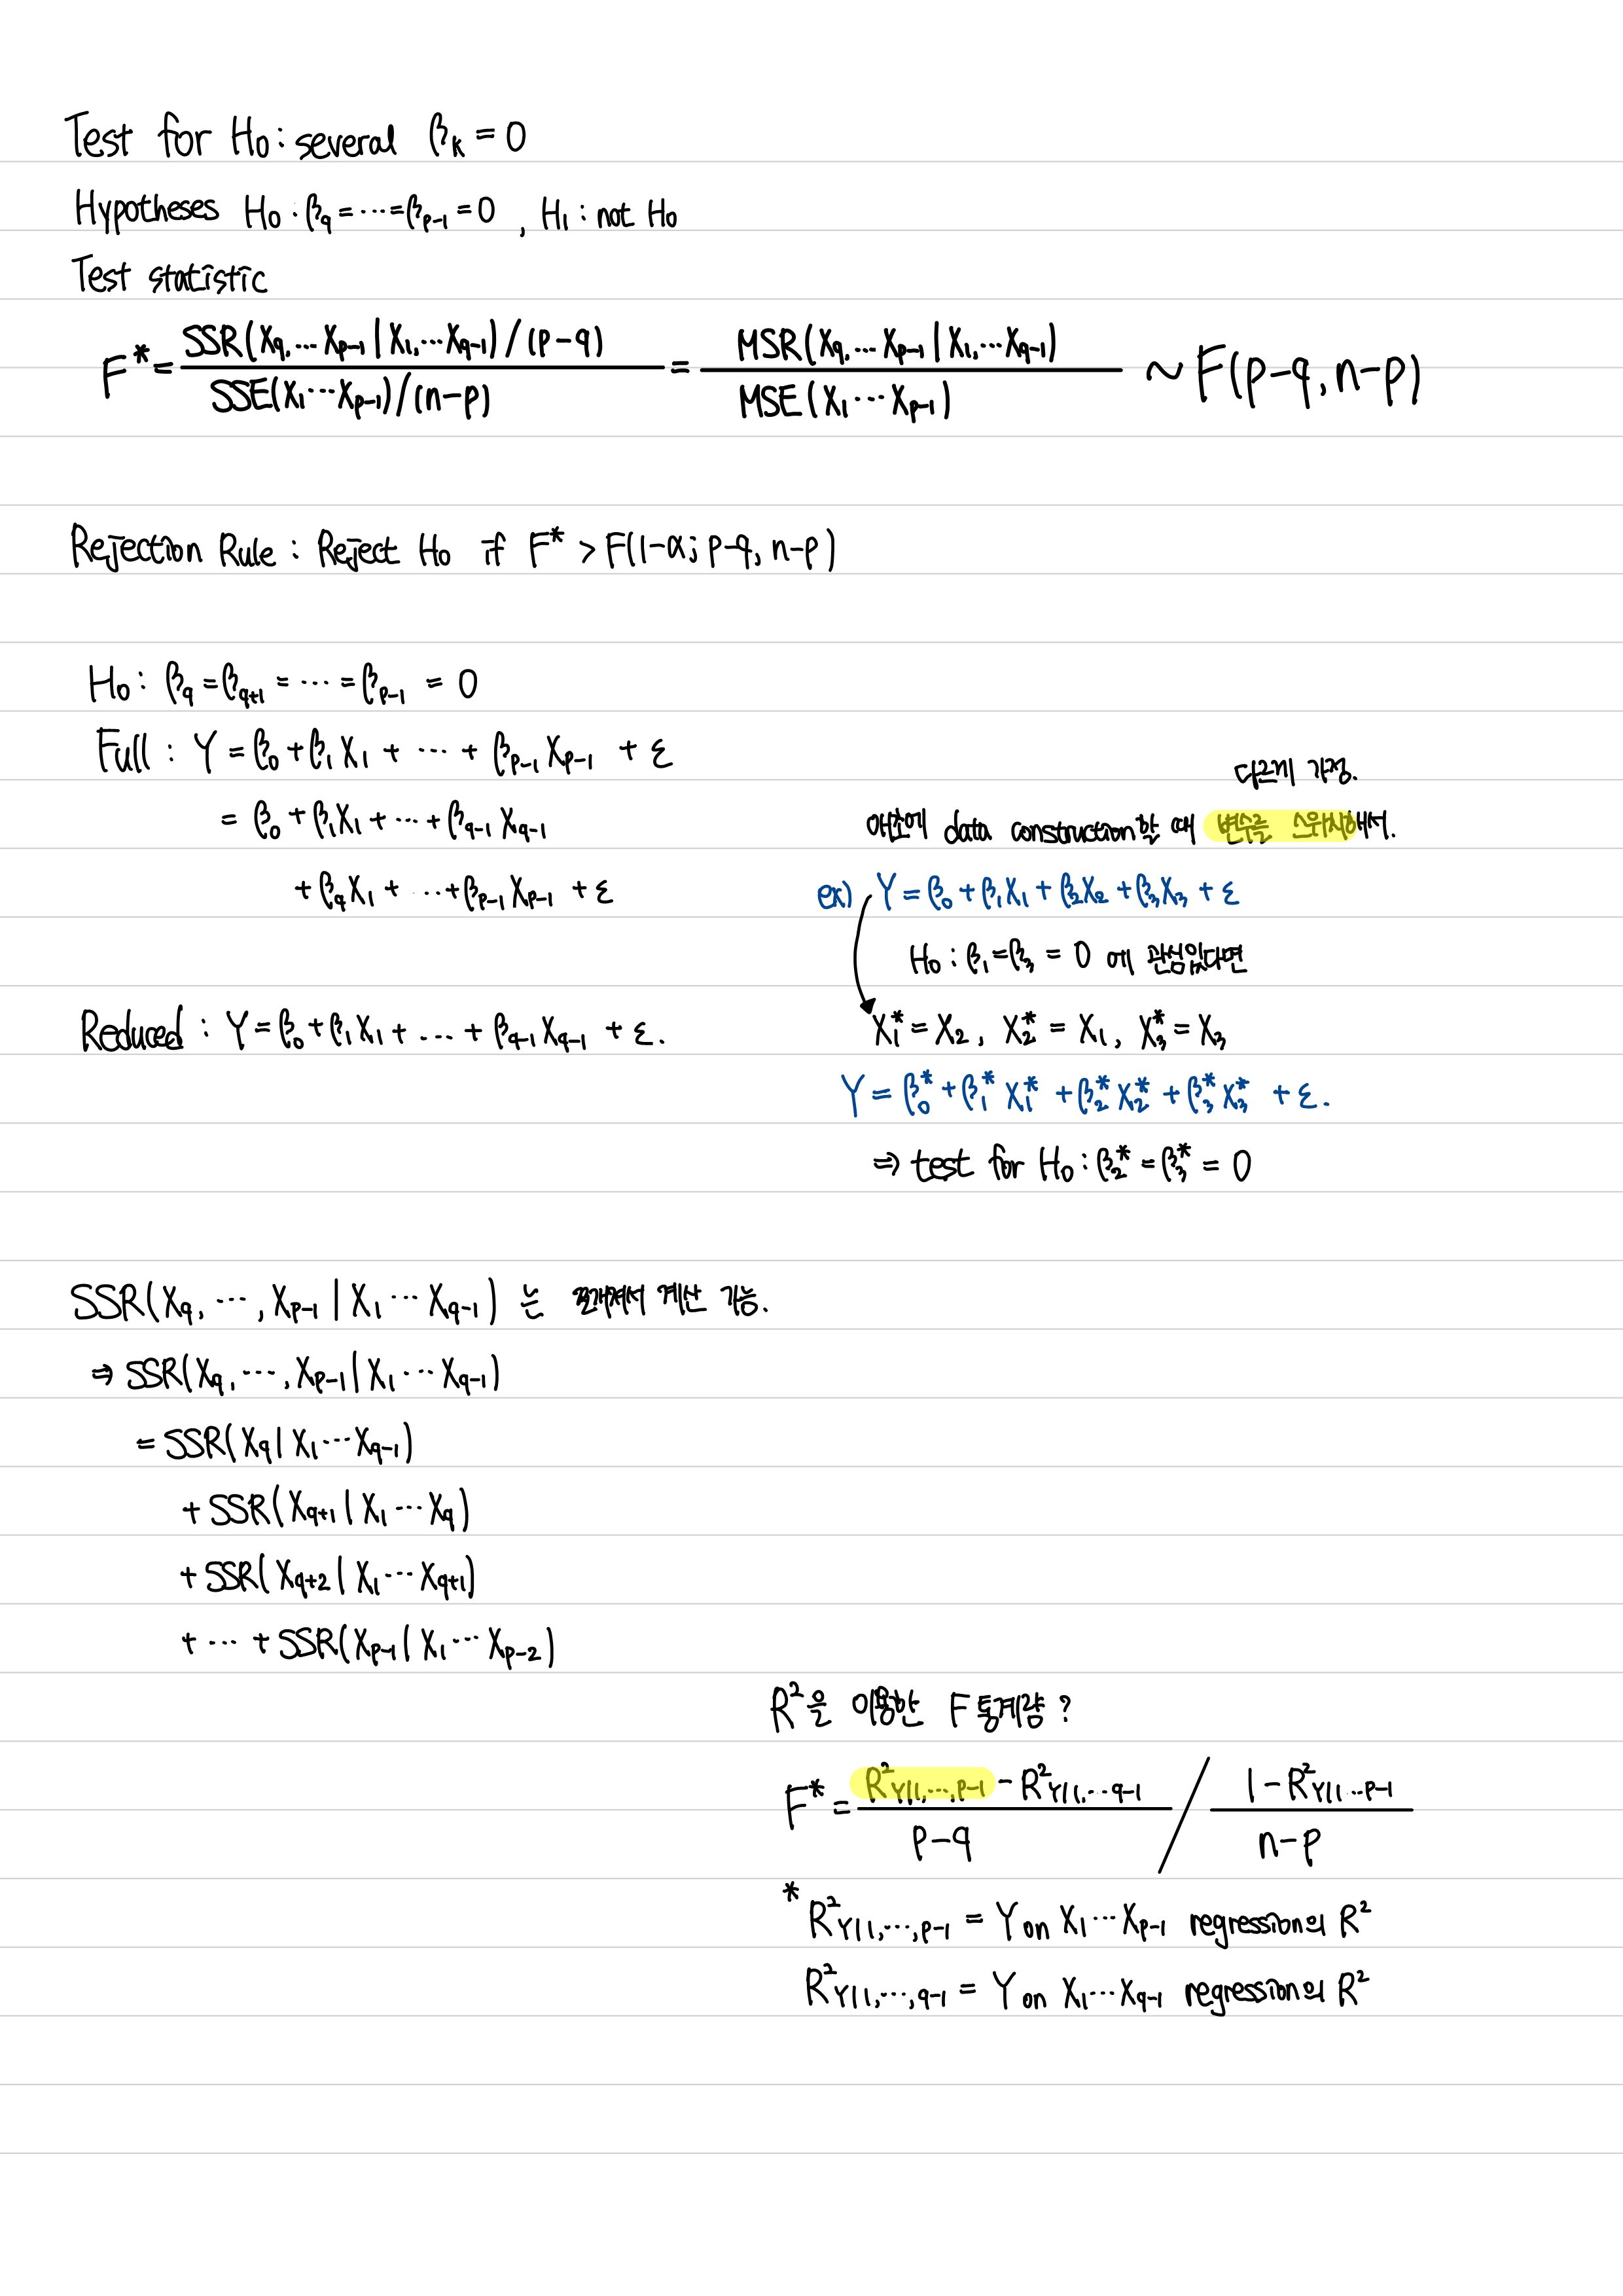 Test for H₀ : several βₖ = 0
Hypotheses H₀ : β_q = ⋯ = β_{p-1} = 0 , H₁ : not H₀
Test statistic
F* = SSR(X_q, ⋯ X_{p-1} | X₁, ⋯ X_{q-1}) / (p-q) / SSE(X₁ ⋯ X_{p-1}) / (n-p) = MSR(X_q, ⋯ X_{p-1} | X₁, ⋯ X_{q-1}) / MSE(X₁ ⋯ X_{p-1}) ~ F(p-q, n-p)
Rejection Rule : Reject H₀ if F* > F(1-α; p-q, n-p)
H₀ : β_q = β_{q+1} = ⋯ = β_{p-1} = 0
Full : Y = β₀ + β₁X₁ + ⋯ + β_{p-1}X_{p-1} + ε
= β₀ + β₁X₁ + ⋯ + β_{q-1}X_{q-1}
+ β_qX₁ + ⋯ + β_{p-1}X_{p-1} + ε
Reduced : Y = β₀ + β₁X₁ + ⋯ + β_{q-1}X_{q-1} + ε.
다른게 가정.
애초에 data construction할 때 변수를 스위치해서.
ex) Y = β₀ + β₁X₁ + β₂X₂ + β₃X₃ + ε
H₀ : β₁ = β₃ = 0 에 관심있다면
X₁* = X₂, X₂* = X₁, X₃* = X₃
Y = β₀* + β₁*X₁* + β₂*X₂* + β₃*X₃* + ε.
⇒ test for H₀ : β₂* = β₃* = 0
SSR(X_q, ⋯, X_{p-1} | X₁ ⋯ X_{q-1}) 는 쪼개져서 계산 가능.
⇒ SSR(X_q, ⋯, X_{p-1} | X₁ ⋯ X_{q-1})
= SSR(X_q | X₁ ⋯ X_{q-1})
+ SSR(X_{q+1} | X₁ ⋯ X_q)
+ SSR(X_{q+2} | X₁ ⋯ X_{q+1})
+ ⋯ + SSR(X_{p-1} | X₁ ⋯ X_{p-2})
R²을 이용한 F 통계량 ?
F* = R²_{Y|1,⋯,p-1} - R²_{Y|1,⋯q-1} / p-q / 1 - R²_{Y|1⋯p-1} / n-p
* R²_{Y|1,⋯,p-1} = Y on X₁ ⋯ X_{p-1} regression의 R²
R²_{Y|1,⋯,q-1} = Y on X₁ ⋯ X_{q-1} regression의 R²